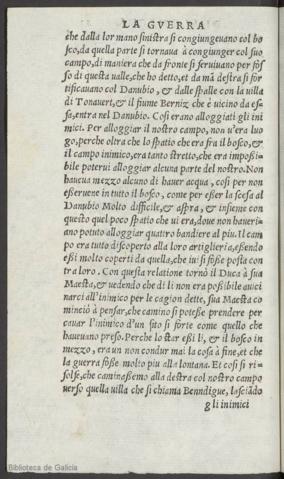 LA GVERRA
che dalla lor mano sinistra si congiungeuano col bo
sco, da quella parte si tornaua à congiunger col suo
campo, di maniera che da fronte si seruiuano per fos
so di questa ualle, che ho detto, et da mā destra si for
tificauano col Danubio, & dalle spalle con la uilla
di Tonauert, & il fiume Berniz che è uicino da es-
sa, entra nel Danubio. Cosi erano alloggiati gli ini
mici. Per alloggiar il nostro campo, non u'era luo
go, perche oltra che lo spatio che era fra il bosco, &
il campo inimico, era tanto stretto, che era impossi-
bile poterui alloggiar alcuna parte del nostro. Non
haueua mezzo alcuno di hauer acqua, cosi per non
esseruene in tutto il bosco, come per esser la scesa al
Danubio Molto difficile, & aspra, & insieme con
questo quel poco spatio che ui era, doue non haueri-
ano potuto alloggiar quattro bandiere al piu. Il cam
po era tutto discoperto alla loro artiglieria, essendo
essi molto coperti da quella, che iui si fosse posta con
tra loro. Con questa relatione tornò il Duca à sua
Maesta, & uedendo che di li non era possibile auici
narci all'inimico per le cagion dette, sua Maesta co
minciò à pensar, che camino si potesse prendere per
cauar l'inimico d'un sito si forte come quello che
haueuano preso. Perche lo star essi li, & il bosco in
mezzo, era un non condur mai la cosa à fine, et che
la guerra fosse molto piu alla lontana. Et cosi si ri-
solse, che caminassemo alla destra col nostro campo
uerso quella uilla che si chiama Benndigue, lasciādo
gli inimici
Biblioteca de Galicia